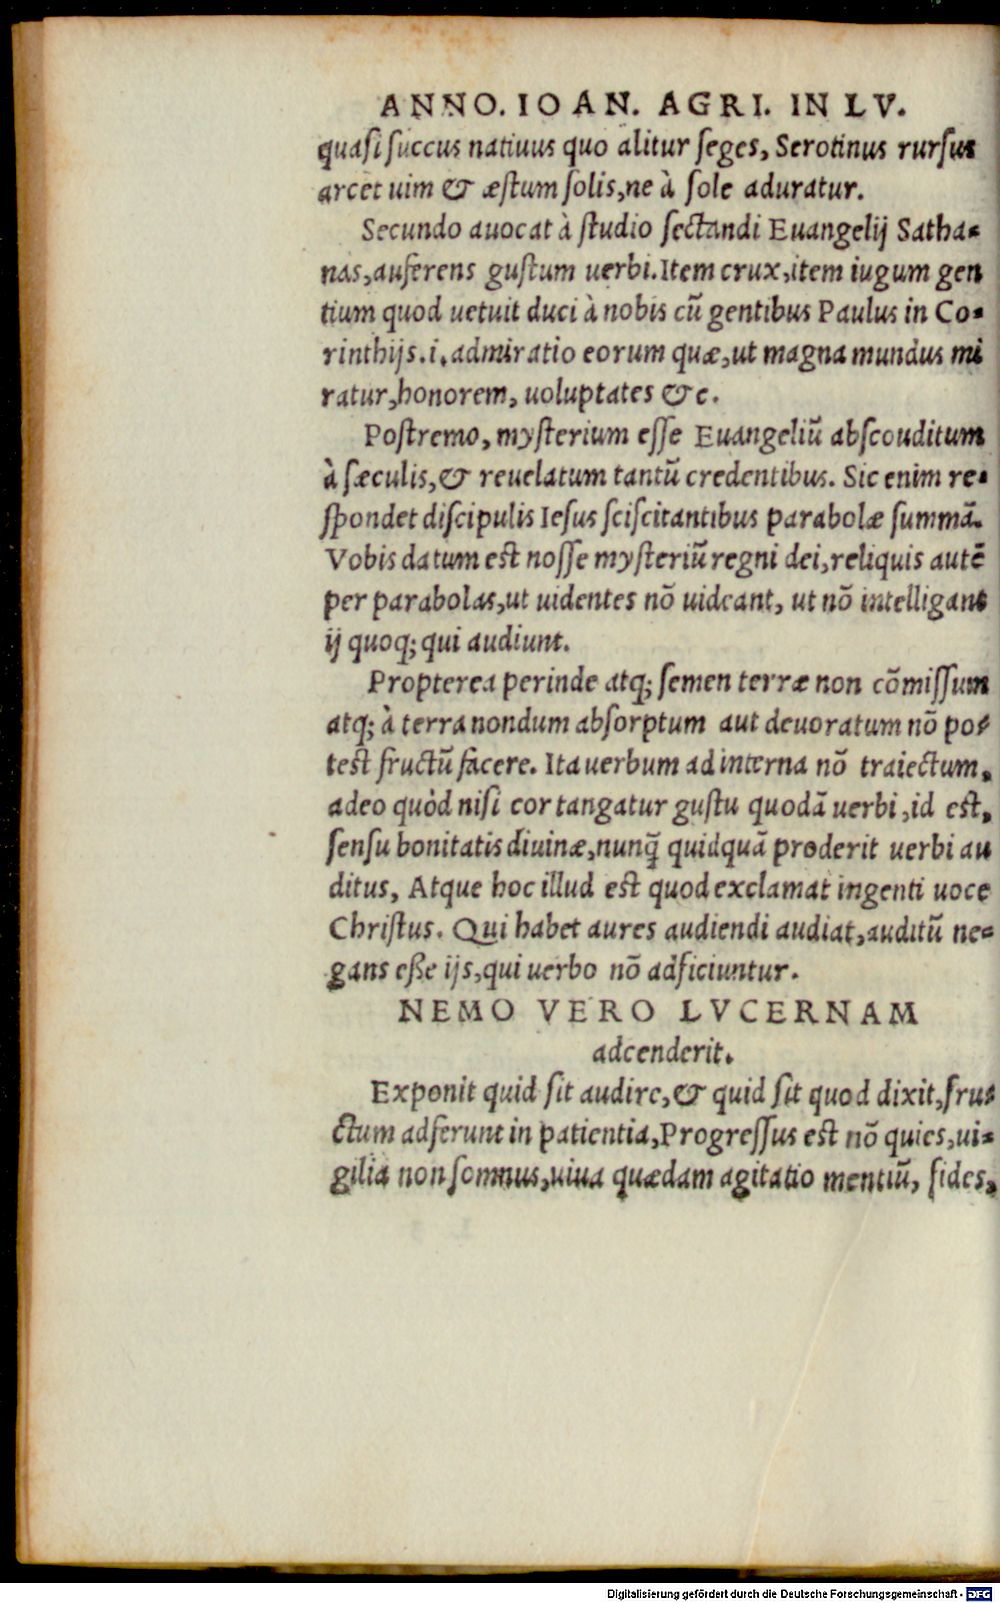 ANNO. IOAN. AGRI. IN LV.
quasi succus natiuus quo alitur seges, Serotinus rursus
arcet uim & æstum solis, ne à sole aduratur.
Secundo auocat à studio sectandi Euangelij Satha-
nas, auferens gustum uerbi. Item crux, item iugum gen
tium quod uetuit duci à nobis cũ gentibus Paulus in Co-
rinthijs. i. admiratio eorum quæ, ut magna mundus mi
ratur, honorem, uoluptates &c.
Postremo, mysterium esse Euangeliũ abscouditum
à sæculis, & reuelatum tantũ credentibus. Sic enim re-
spondet discipulis Iesus sciscitantibus parabolæ summã.
Vobis datum est nosse mysteriũ regni dei, reliquis autẽ
per parabolas, ut uidentes nõ uideant, ut nõ intelligant
ij quoq; qui audiunt.
Propterea perinde atq; semen terræ non cõmissum
atq; à terra nondum absorptum aut deuoratum nõ po-
test fructũ facere. Ita uerbum ad interna nõ traiectum,
adeo quòd nisi cor tangatur gustu quodã uerbi, id est,
sensu bonitatis diuinæ, nunq̃ quidquã proderit uerbi au
ditus, Atque hoc illud est quod exclamat ingenti uoce
Christus. Qui habet aures audiendi audiat, auditũ ne-
gans eße ijs, qui uerbo nõ adficiuntur.
NEMO VERO LVCERNAM
adcenderit.
Exponit quid sit audire, & quid sit quod dixit, fru-
ctum adferunt in patientia, Progressus est nõ quies, ui-
gilia non somnus, uiua quædam agitatio mentiũ, fides,
Digitalisierung gefördert durch die Deutsche Forschungsgemeinschaft - DFG